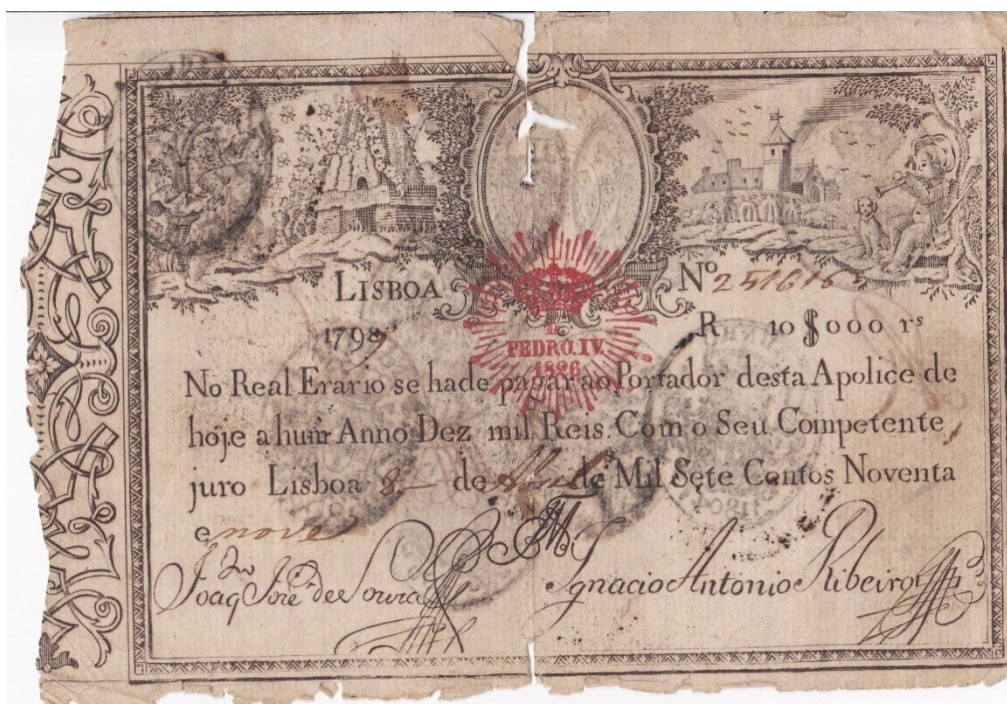 LISBOA
Nº 251616
1799
R 10 $ 000 rs
PEDRO. IV.
1826
No Real Erario se hade pagar ao Portador desta Apolice de
hoje a hum Anno Dez mil Reis. Com o Seu Competente
juro Lisboa 8 de Abril de Mil Sete Centos Noventa
e nove
Joaqm José de Souza
Ignacio Antonio Ribeiro